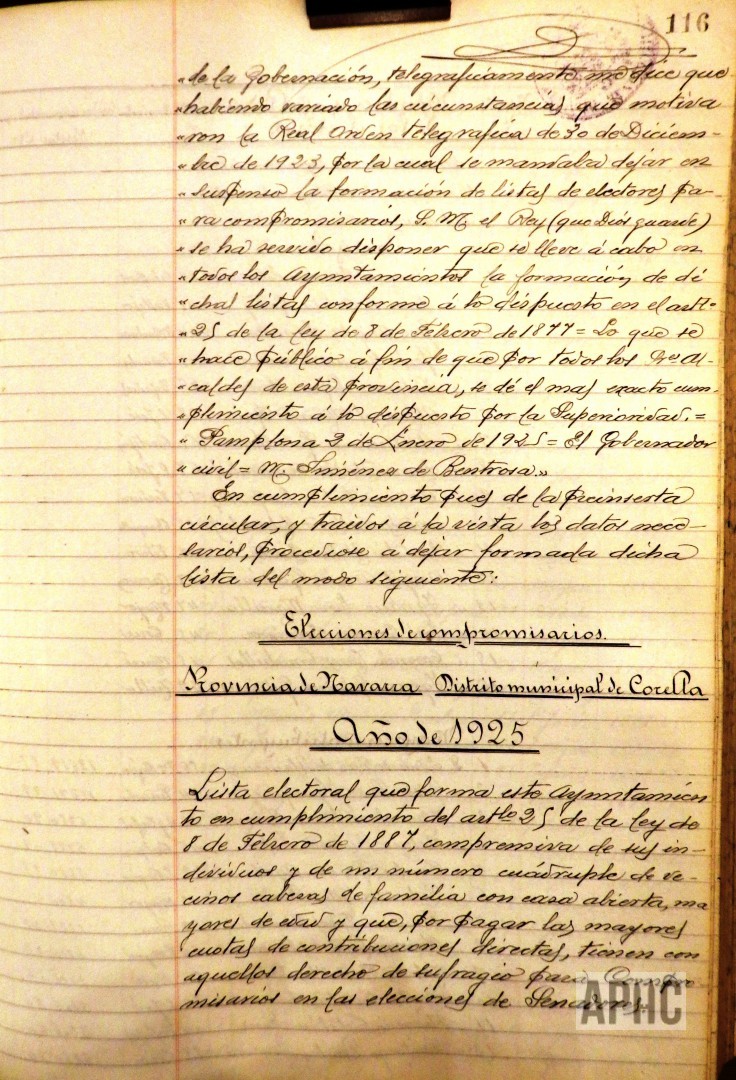 116
"de la Gobernación, telegraficamente me dice que
"habiendo variado las circunstancias que motiva
"ron la Real Orden telegrafica de 30 de Diciem-
"bre de 1923, por la cual se mandaba dejar en
"suspenso la formación de listas de electores pa-
"ra compromisarios, S. M. el Rey (que Dios guarde)
"se ha servido disponer que se lleve á cabo en
"todos los Ayuntamientos la formación de di
"chas listas conforme á lo dispuesto en el artº
"25 de la ley de 8 de Febrero de 1877 = Lo que se
"hace público á fin de que por todos los Sres Al-
"caldes de esta provincia, se dé el mas exacto cum-
"plimiento á lo dispuesto por la Superioridad. =
"Pamplona 2 de Enero de 1925 = El Gobernador
"civil = M. Jiménez de Bentrosa."
En cumplimiento pues de la preinserta
circular, y traidos á la vista los datos nece-
sarios, procediose á dejar formada dicha
lista del modo siguiente:
Elecciones de compromisarios.
Provincia de Navarra Distrito municipal de Corella
Año de 1925
Lista electoral que forma este Ayuntamien
to en cumplimiento del artlo 25 de la ley de
8 de Febrero de 1887, compremiva de sus in-
dividuos y de un número cuádruple de ve-
cinos cabezas de familia con casa abierta, ma
yores de edad y que, por pagar las mayores
cuotas de contribuciones directas, tienen con
aquellos derecho de sufragio para Compro
misarios en las elecciones de Senadores.
APHC